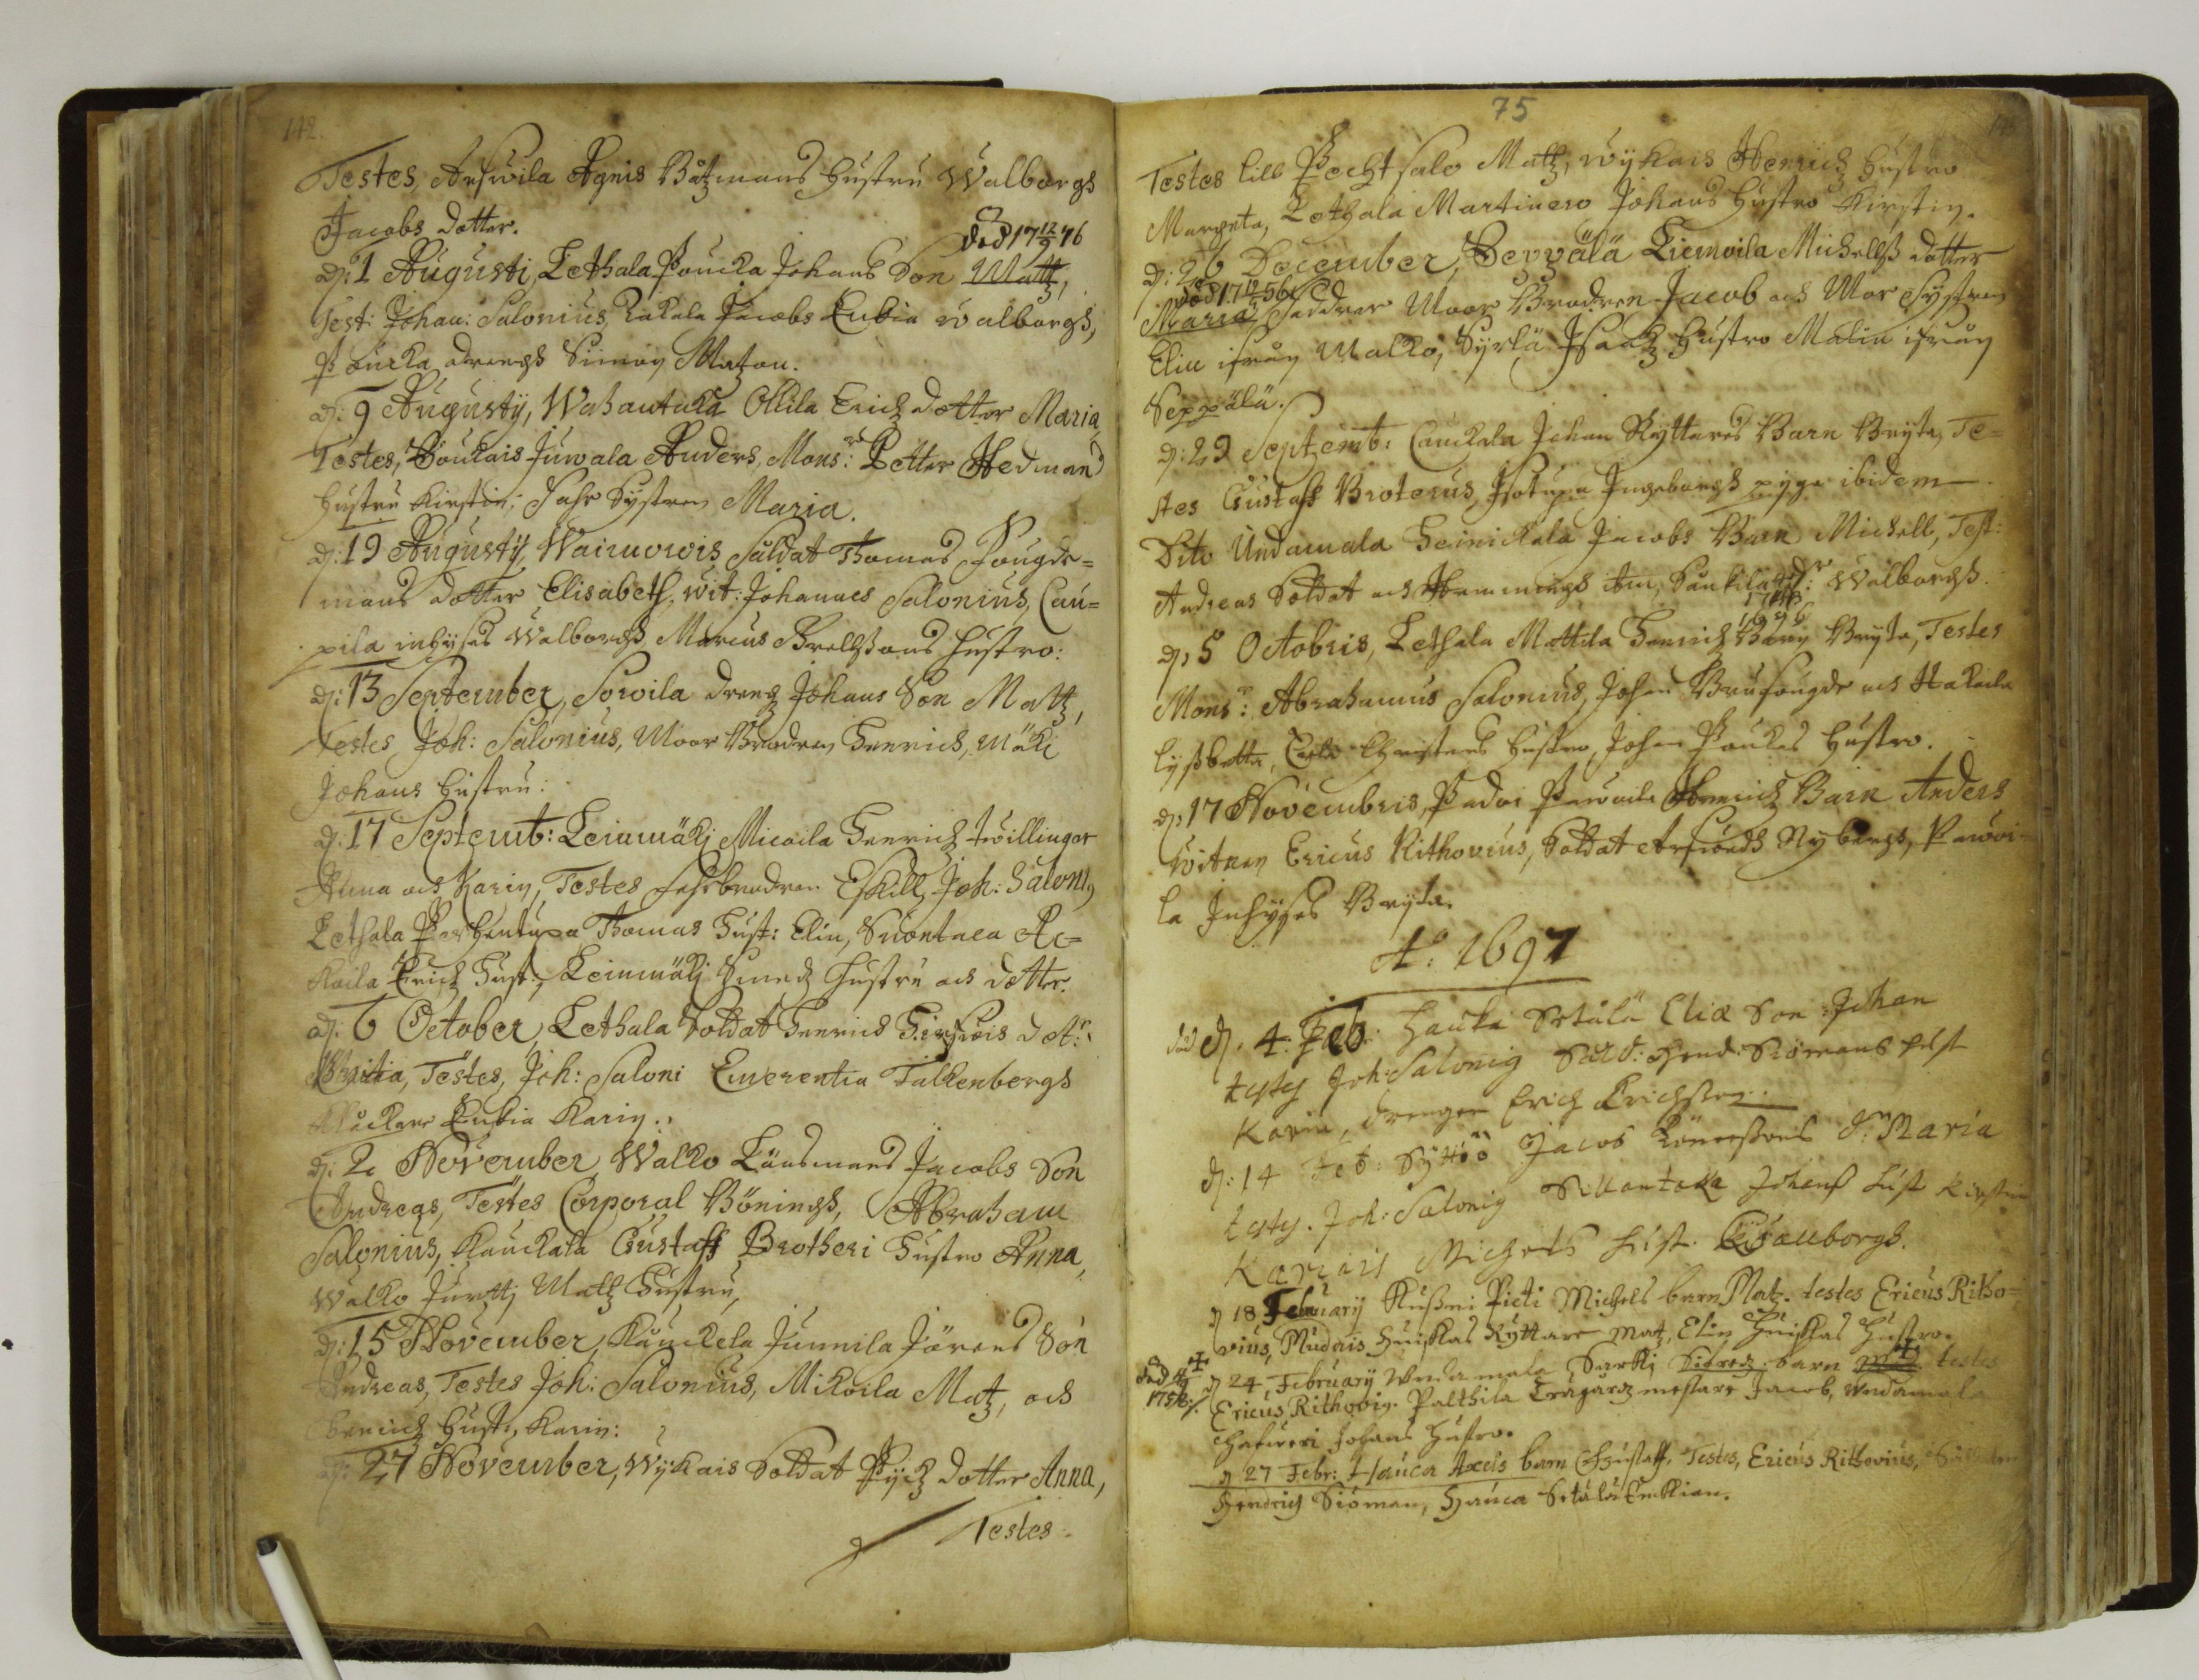 142.
Testes, Arfwila Agnis Båtzmans hustru Walborgs
Jacobs dotter.
död 17 12/9 76
d: 1 Augusti, Lethala Poucka Johans Son Matz,
Test: Johan: Salonius, Kakala Jacobs Enkia Walborgs,
Poucka drengs Simon Matzon.
d: 9 Augustij, Wahantaka Ollila Erich dotter Maria
Testes, Boukais Juwala Anders, Mons:r Petter Hedmans
hustru Kirstin, Fahr Systren Maria.
d: 19 Augustij, Wairuowis Suldat Thomas Fougde=
mans dotter Elisabeth, wit: Johannes Salonius, Cau=
pila inhyses Walborgs Marcus Brellssons hustro:
d: 13 September, Sorvila dreng Johans Son Matz,
Testes Joh: Salonius, Moor Brodren Henrich, Mäki
Johans hustru:
d: 17 Septemb: Leinmäki Micoila Henrich twillingar
Anna och Karin, Testes Fahrbrodren Eskill, Joh: Saloni9
Lethala Perhentupa Thomas Hust: Elin, Suontaca Ac=
kaila Erich Hust:, Leinmäki Smeds hustru och dotter.
d: 6 October, Lethala Soldat Henrich Hirfwis dot:r
Britia, Testes, Joh: Saloni Emerentia Falkenbergs
Klåckare Enkia Karin:
d: 2 November Walko Länsmans Jacobs Son
Andreas, Testes Corporal Bönings, Abraham
Salonius, Kauckala Gustaff Brotheri Hustro Anna,
Walko Jurtti Matz Hustru,
d: 15 November, Kauckela Junnila Jörens Son
Andreas, Testes Joh: Salonius, Mikoila Matz, och
Henrich Hust:, Karin:
d: 27 November, Wykais Soldat Pijck dotter Anna,
Testes
75
Testes lill Pecht salo Matz, wykais Henrich hustro
Margeta, Lethala Martinero Johans hustro Kirstin.
d: 26 December, Seppälä Liemoila Michellss dotter
död 17 56
Maria, Faddrar Moor Brodren Jacob och Mor Systren
Elin ifrån Malko, Syrlä Isaak hustro Malin ifrån
Seppälä.
d: 29 Septemb: Cauckala Johan Ryttares Barn Bryta, Te=
stes Gustaff Broterus, Isotupa Ingeborgs pyga ibidem
Dito Undamala Heinickala Jacobs Barn Michell, Test:
Andreas Soldat och Hemmings Am, Sänkila d:r Walborgss.
d: 5 Octobris, Lethala Mattila Henrich Barn Bryta, Testes
Mons:r Abrahamus Salonius, Johan Brufougde och Hakaila
Lyssbetta, Christers hustro, Johan Poukas hustro.
d: 17 Novembris, Padoi Pawoila Henrich Barn Anders
Witnen Ericus Rithovius, Soldat Arfweds Nybergs, Pawoi-
la Inhyses Bryta.
A:o 1697
död d. 4. Feb: Hauka Setälä Eliæ Son Johan
testes Joh: Salonig Sold: Hend: Siömans hust
Karin, drengen Erich Erichsson.
d: 14 Feb: Syttiö Jacob Könnossons d:r Maria
testes. Joh: Salonig Sillantaka Johans hust Kirstin
Karrais Michels hust. Wallborgs.
d 18 Februarij Kussmi Pieti Michels barn Matz. testes Ericus Ritho=
vius, Mudais Huiskas Ryttare Matz, Elin Huiskas Hustro.
död
1756
d 24 Februarij Wndamala Sarki Sifredz barn testes
Ericus Rithovig. Palthila Trägårdz mestare Jacob, Wndamala
Johans hustro.
d 27 Febr: Hauca Axels barn Ghustaff, Testes, Ericus Rithovius,
Hendrich Siöman, Hauca Setälä Enkian.